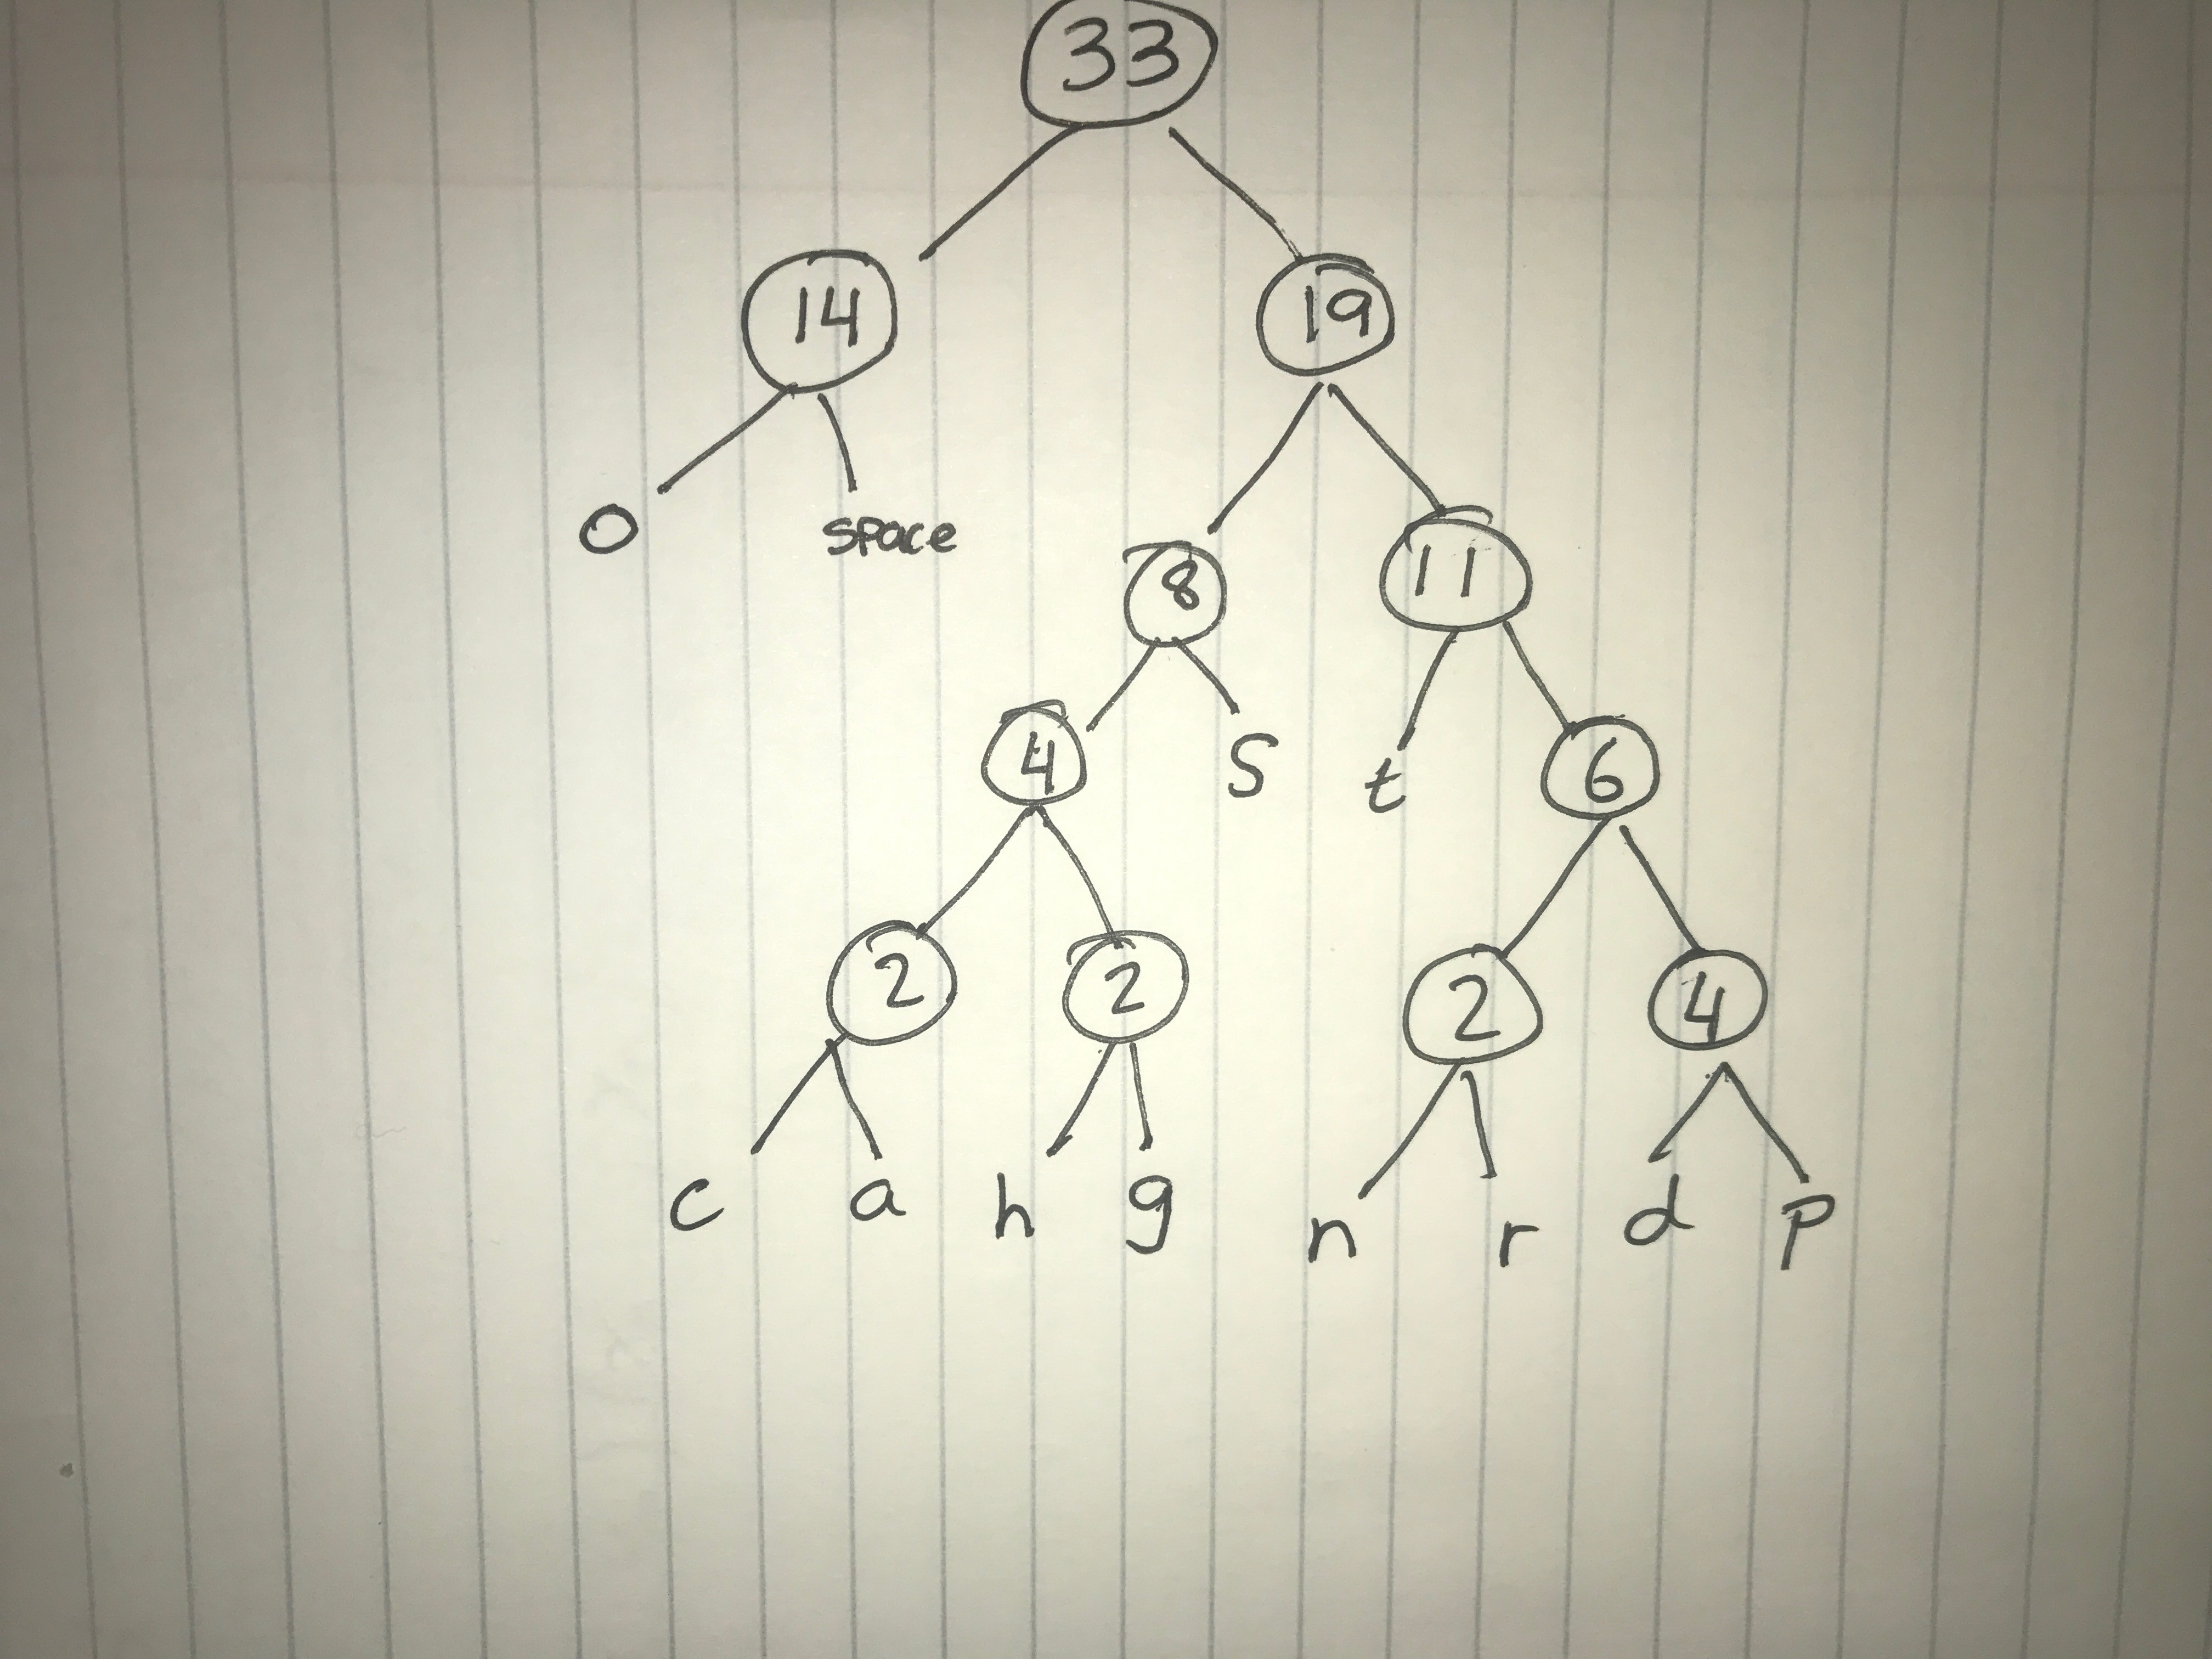 33
14 19
o space
8 11
4 S t 6
2 2 2 4
c a h g n r d p